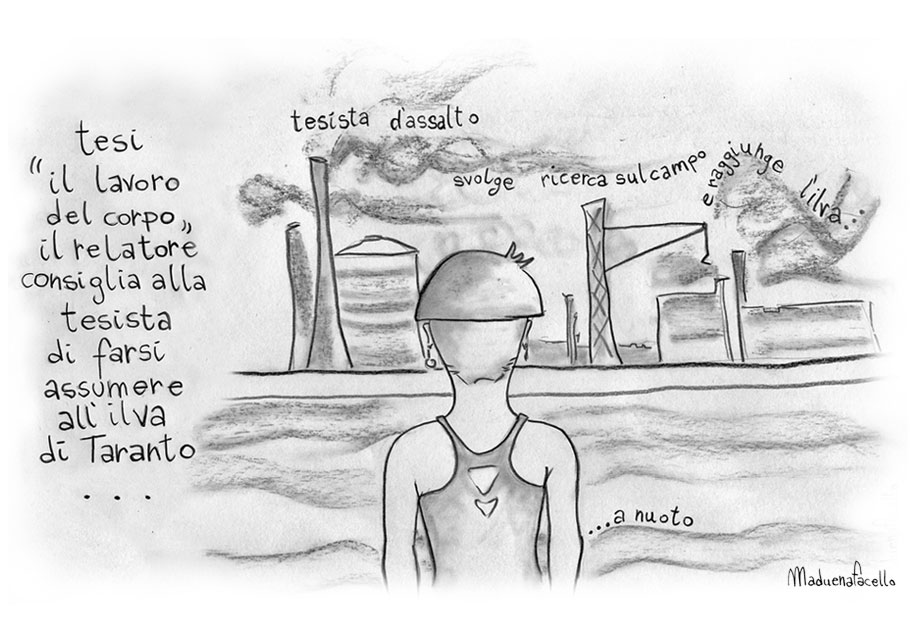 tesi
“il lavoro
del corpo„
il relatore
consiglia alla
tesista
di farsi
assumere
all'ilva
di Taranto
. . .
tesista d'assalto
svolge ricerca sul campo
e raggiunge
l'ilva...
...a nuoto
Maduenafacello